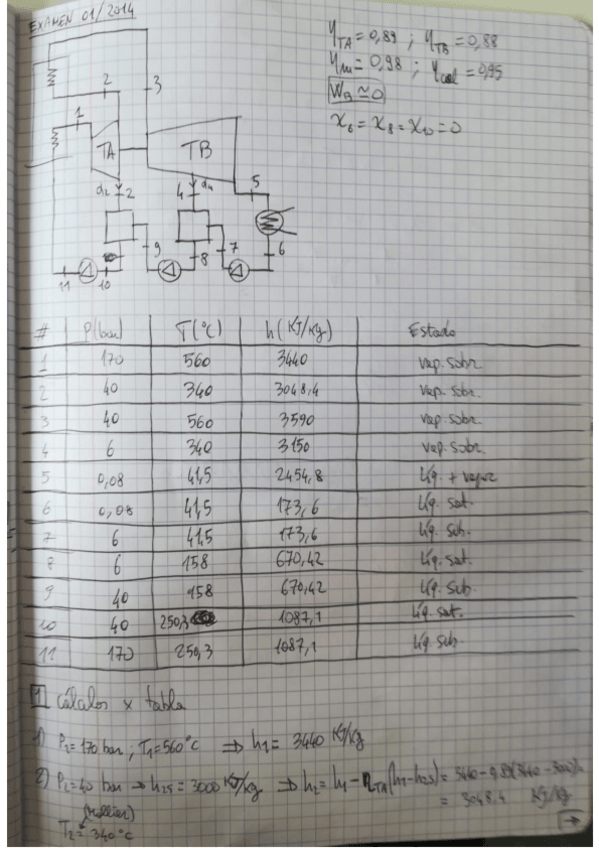 EXAMEN 01/2014
ηTA = 0,89 ; ηTB = 0,88
ηm = 0,98 ; ηcal = 0,95
WB ≃ 0
X6 = X8 = X10 = 0
1
2
3
TA
TB
α2
2
4
α4
5
9
8
7
6
11
10
# P(bar) T(ºC) h(KJ/kg) Estado
1 170 560 3440 vap. sobr.
2 40 340 3048,4 vap. sobr.
3 40 560 3590 vap. sobr.
4 6 340 3150 vap. sobr.
5 0,08 41,5 2454,8 Líq. + vapor
6 0,08 41,5 173,6 Líq. sat.
7 6 41,5 173,6 Líq. sub.
8 6 158 670,42 Líq. sat.
9 40 158 670,42 Líq. sub.
10 40 250,3 1087,1 Líq. sat.
11 170 250,3 1087,1 Líq. sub.
1 cálculos x tabla
1) P1 = 170 bar ; T1 = 560ºC ⇒ h1 = 3440 KJ/kg
2) P2 = 40 bar → h2s = 3000 KJ/kg ⇒ h2 = h1 - ηTA(h1 - h2s) = 3440 - 0,89(3440 - 3000)
(mollier)
= 3048.4 KJ/kg
T2 = 340ºC
→